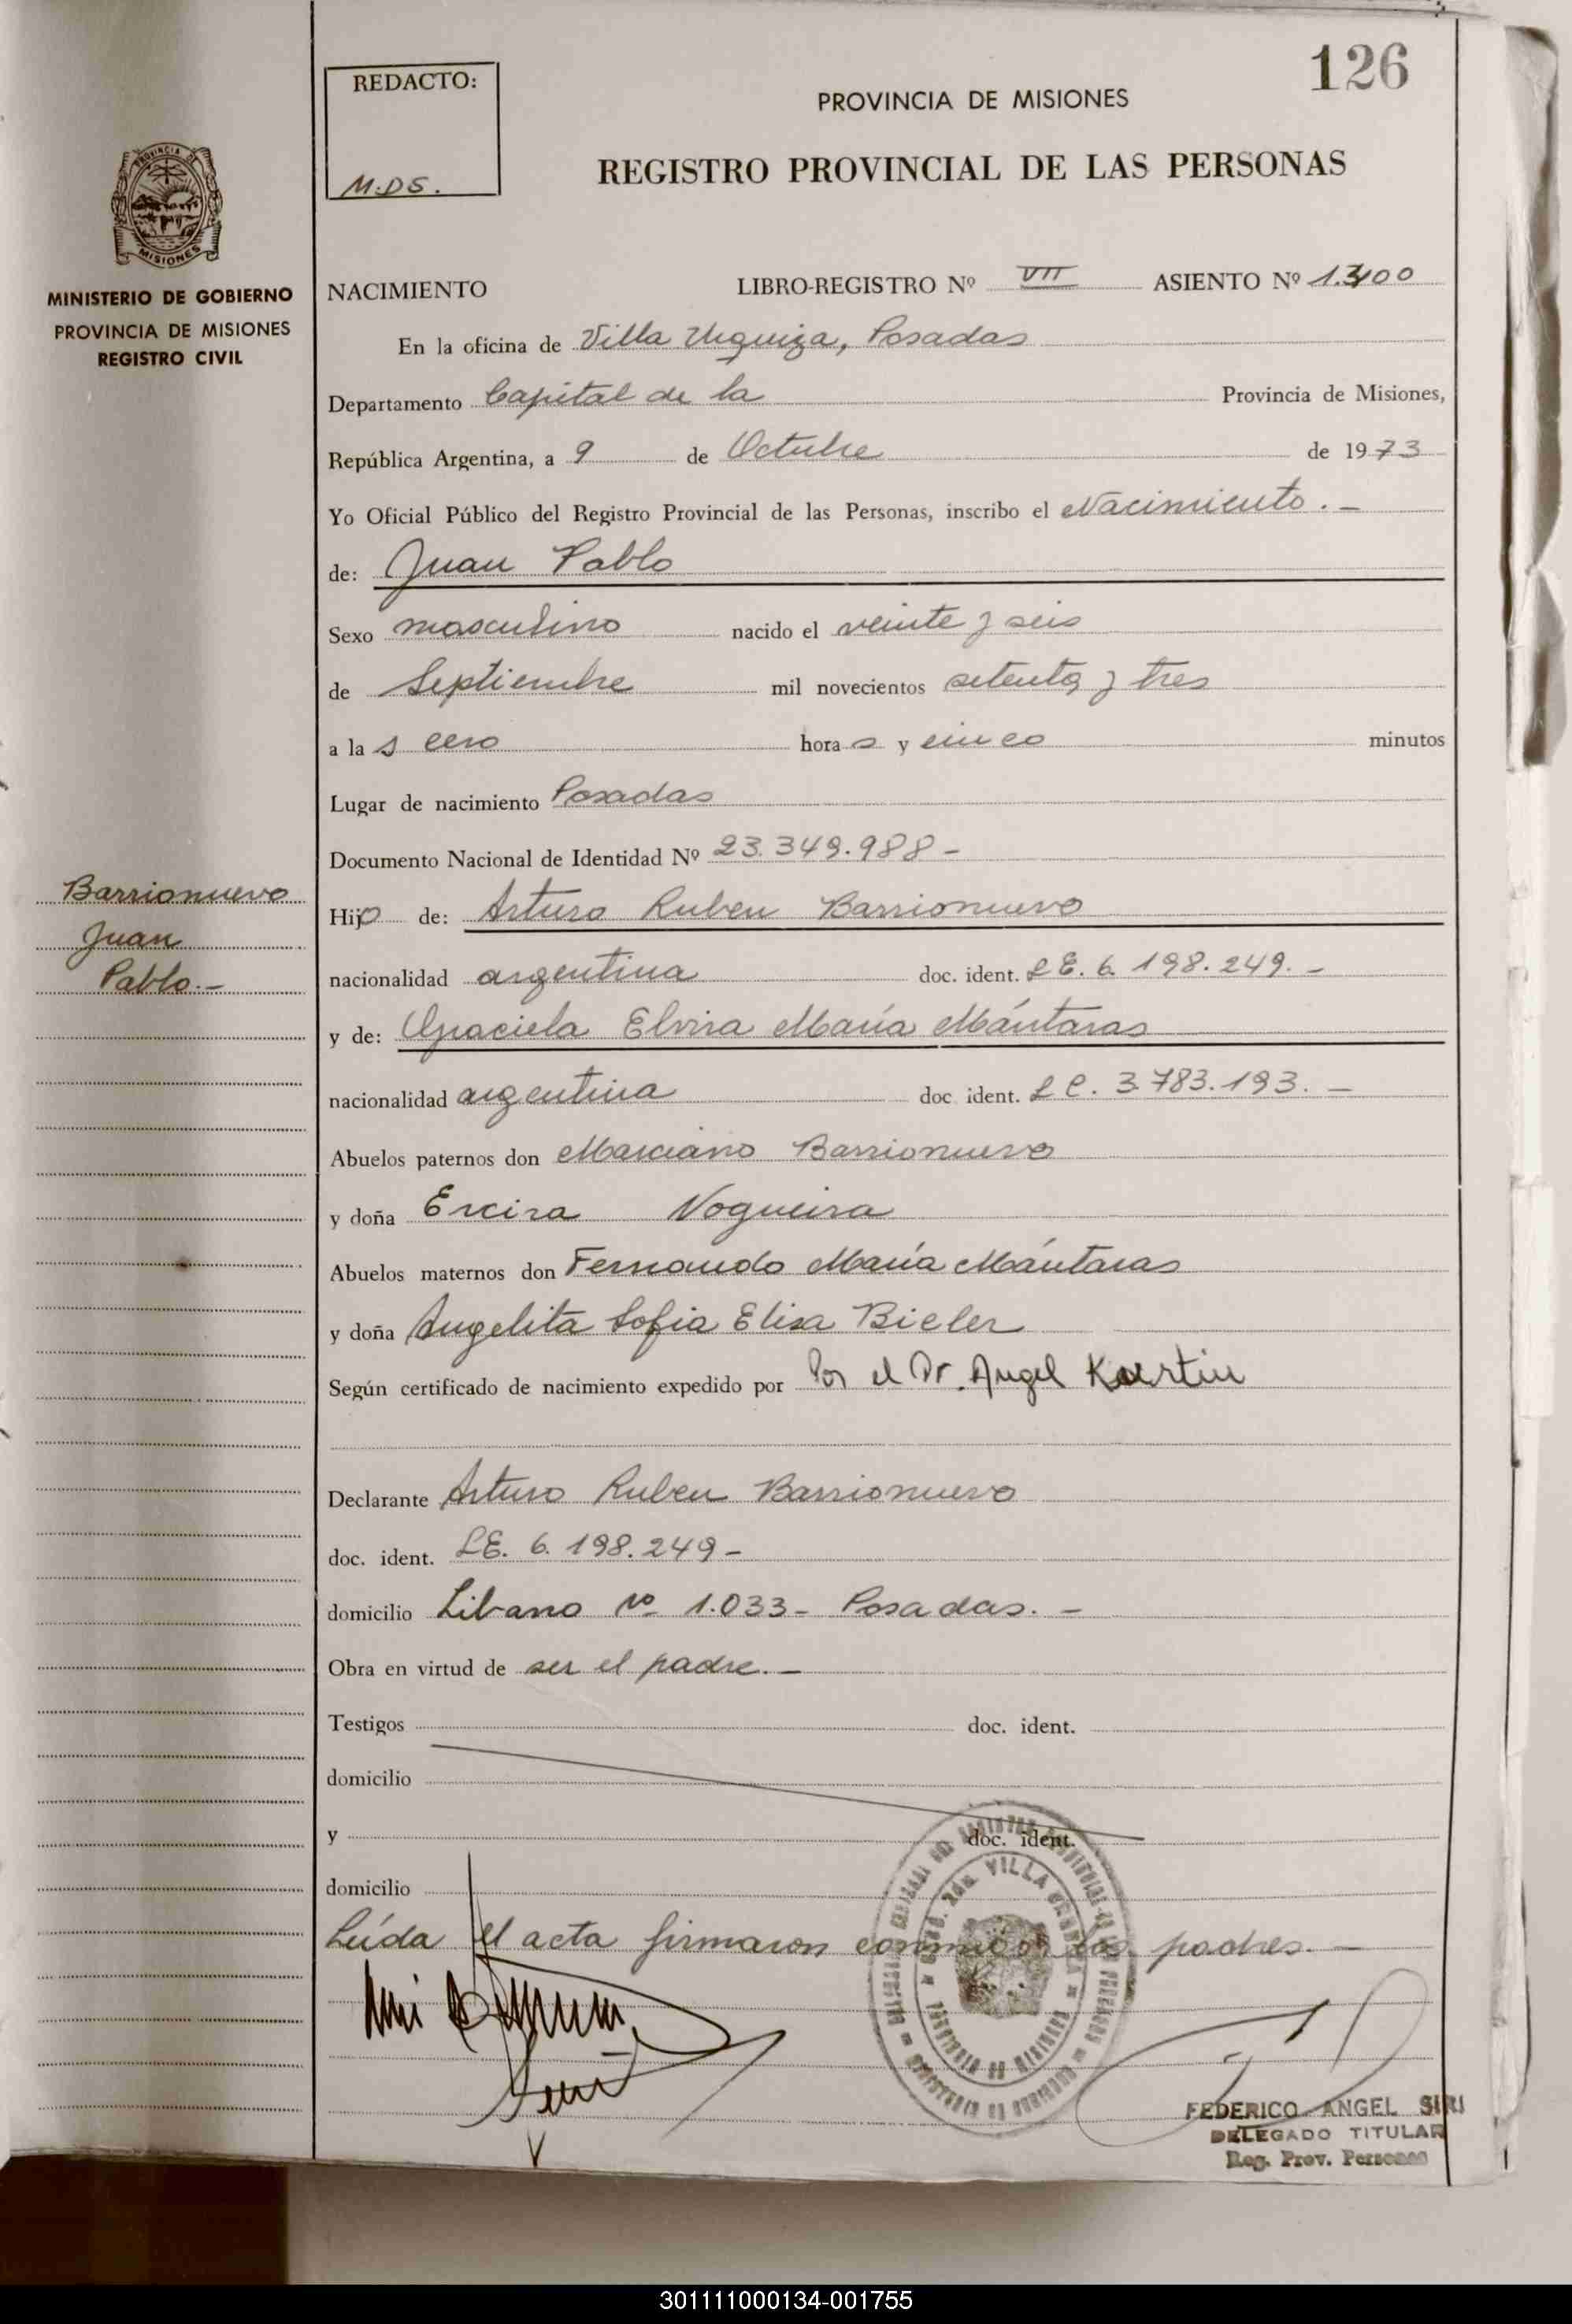 126
REDACTO:
M.DS.
PROVINCIA DE MISIONES
REGISTRO PROVINCIAL DE LAS PERSONAS
PROVINCIA DE
MISIONES
MINISTERIO DE GOBIERNO
PROVINCIA DE MISIONES
REGISTRO CIVIL
NACIMIENTO LIBRO-REGISTRO Nº VII ASIENTO Nº 1.3400
En la oficina de Villa Urquiza, Posadas
Departamento Capital de la Provincia de Misiones,
República Argentina, a 9 de Octubre de 1973
Yo Oficial Público del Registro Provincial de las Personas, inscribo el Nacimiento.-
de: Juan Pablo
Sexo masculino nacido el veinte y seis
de Septiembre mil novecientos setenta y tres
a las cero horas y cinco minutos
Lugar de nacimiento Posadas
Documento Nacional de Identidad Nº 23.349.988-
Barrionuevo
Juan
Pablo.-
Hijo de: Arturo Ruben Barrionuevo
nacionalidad argentina doc. ident. LE. 6.198.249.-
y de: Graciela Elvira María Mántaras
nacionalidad argentina doc. ident. LC. 3.783.193.-
Abuelos paternos don Marciano Barrionuevo
y doña Ercira Nogueira
Abuelos maternos don Fernando María Mántaras
y doña Angelita Sofia Elisa Bieler
Según certificado de nacimiento expedido por Por el Dr. Angel
Declarante Arturo Ruben Barrionuevo
doc. ident. LE. 6.198.249-
domicilio Libano Nº 1.033- Posadas.-
Obra en virtud de ser el padre.-
Testigos doc. ident.
domicilio
y doc. ident.
domicilio
Leída el acta firmaron conmigo los padres.-
VILLA URQUIZA
PROVINCIA DE MISIONES
FEDERICO ANGEL SIRI
DELEGADO TITULAR
Reg. Prov. Personas
301111000134-001755